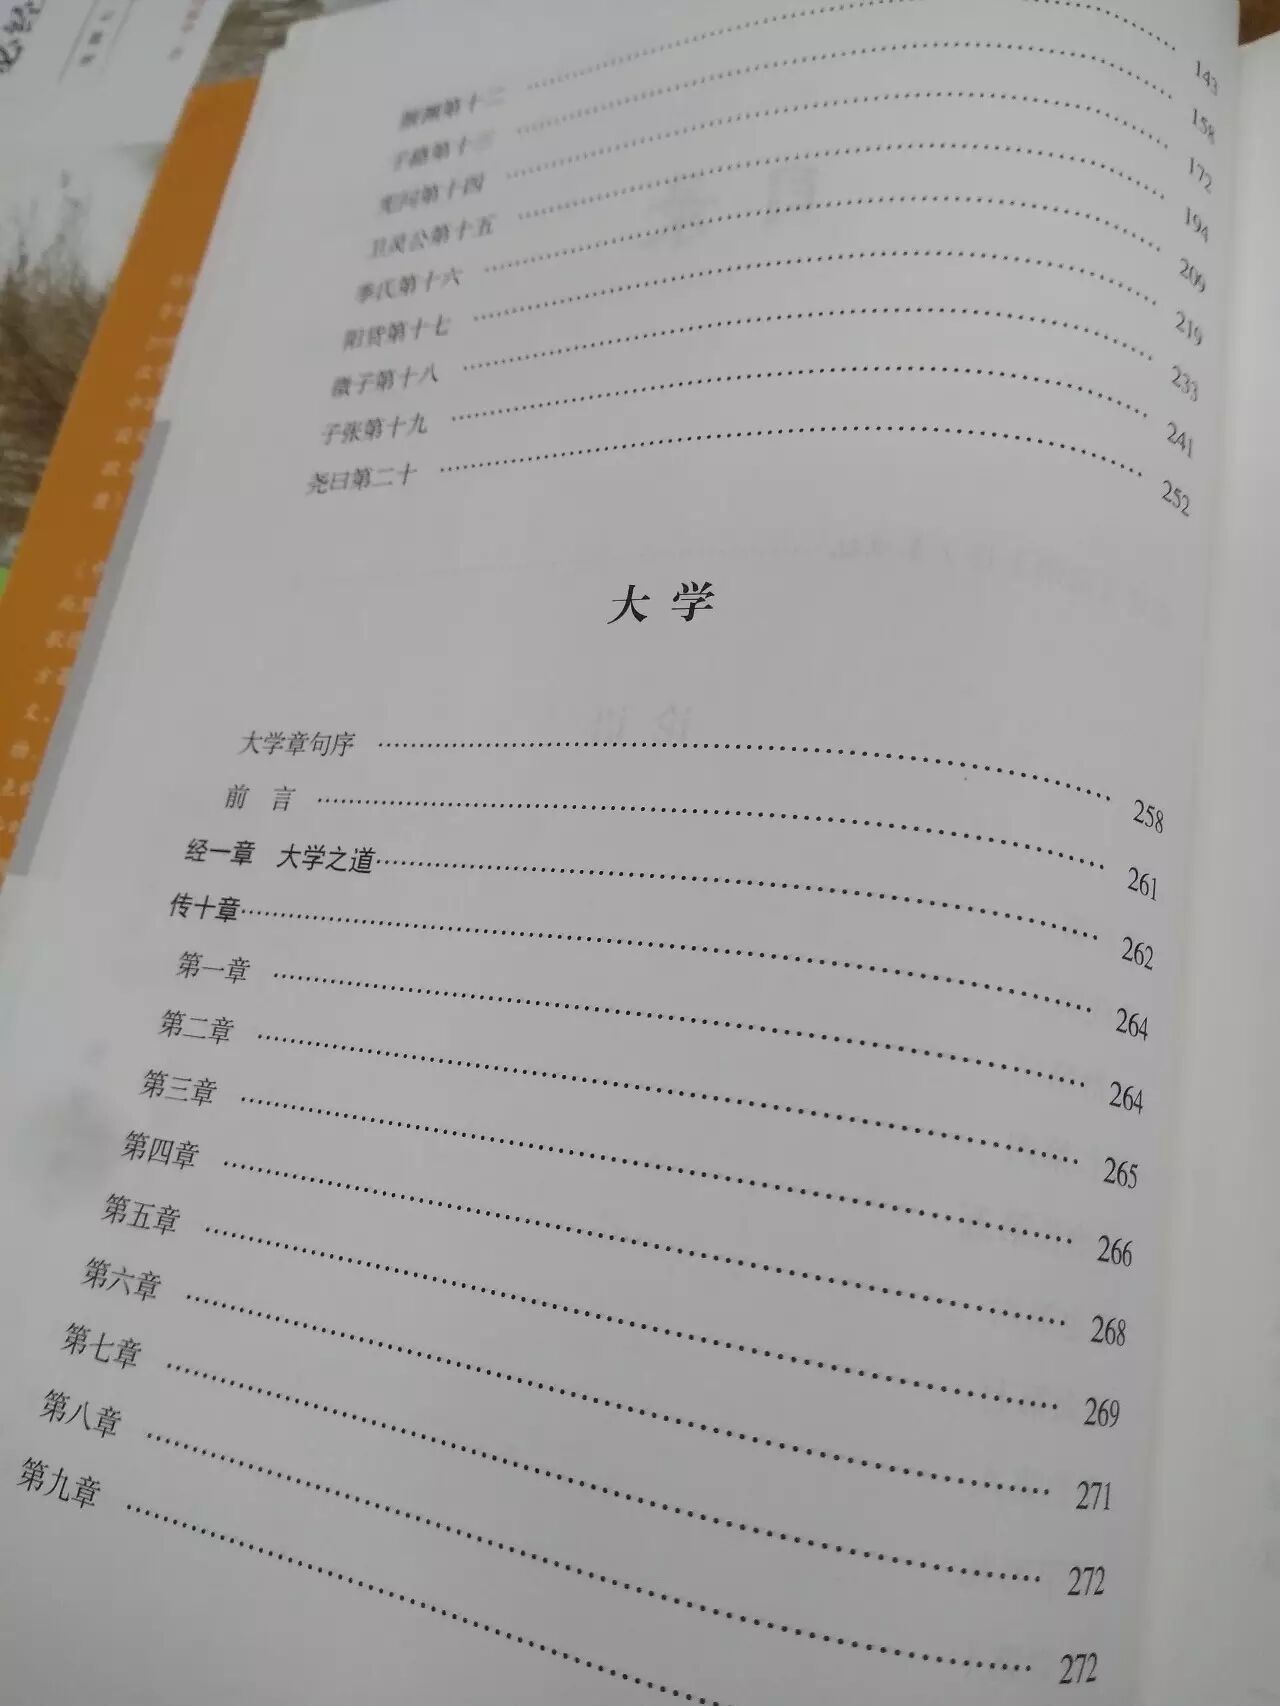 颜渊第十二 …… 143
子路第十三 …… 158
宪问第十四 …… 172
卫灵公第十五 …… 194
季氏第十六 …… 209
阳货第十七 …… 219
微子第十八 …… 233
子张第十九 …… 241
尧曰第二十 …… 252
大学
大学章句序 …… 258
前言 …… 261
经一章 大学之道 …… 262
传十章 …… 264
第一章 …… 264
第二章 …… 265
第三章 …… 266
第四章 …… 268
第五章 …… 269
第六章 …… 271
第七章 …… 272
第八章 …… 272
第九章 ……